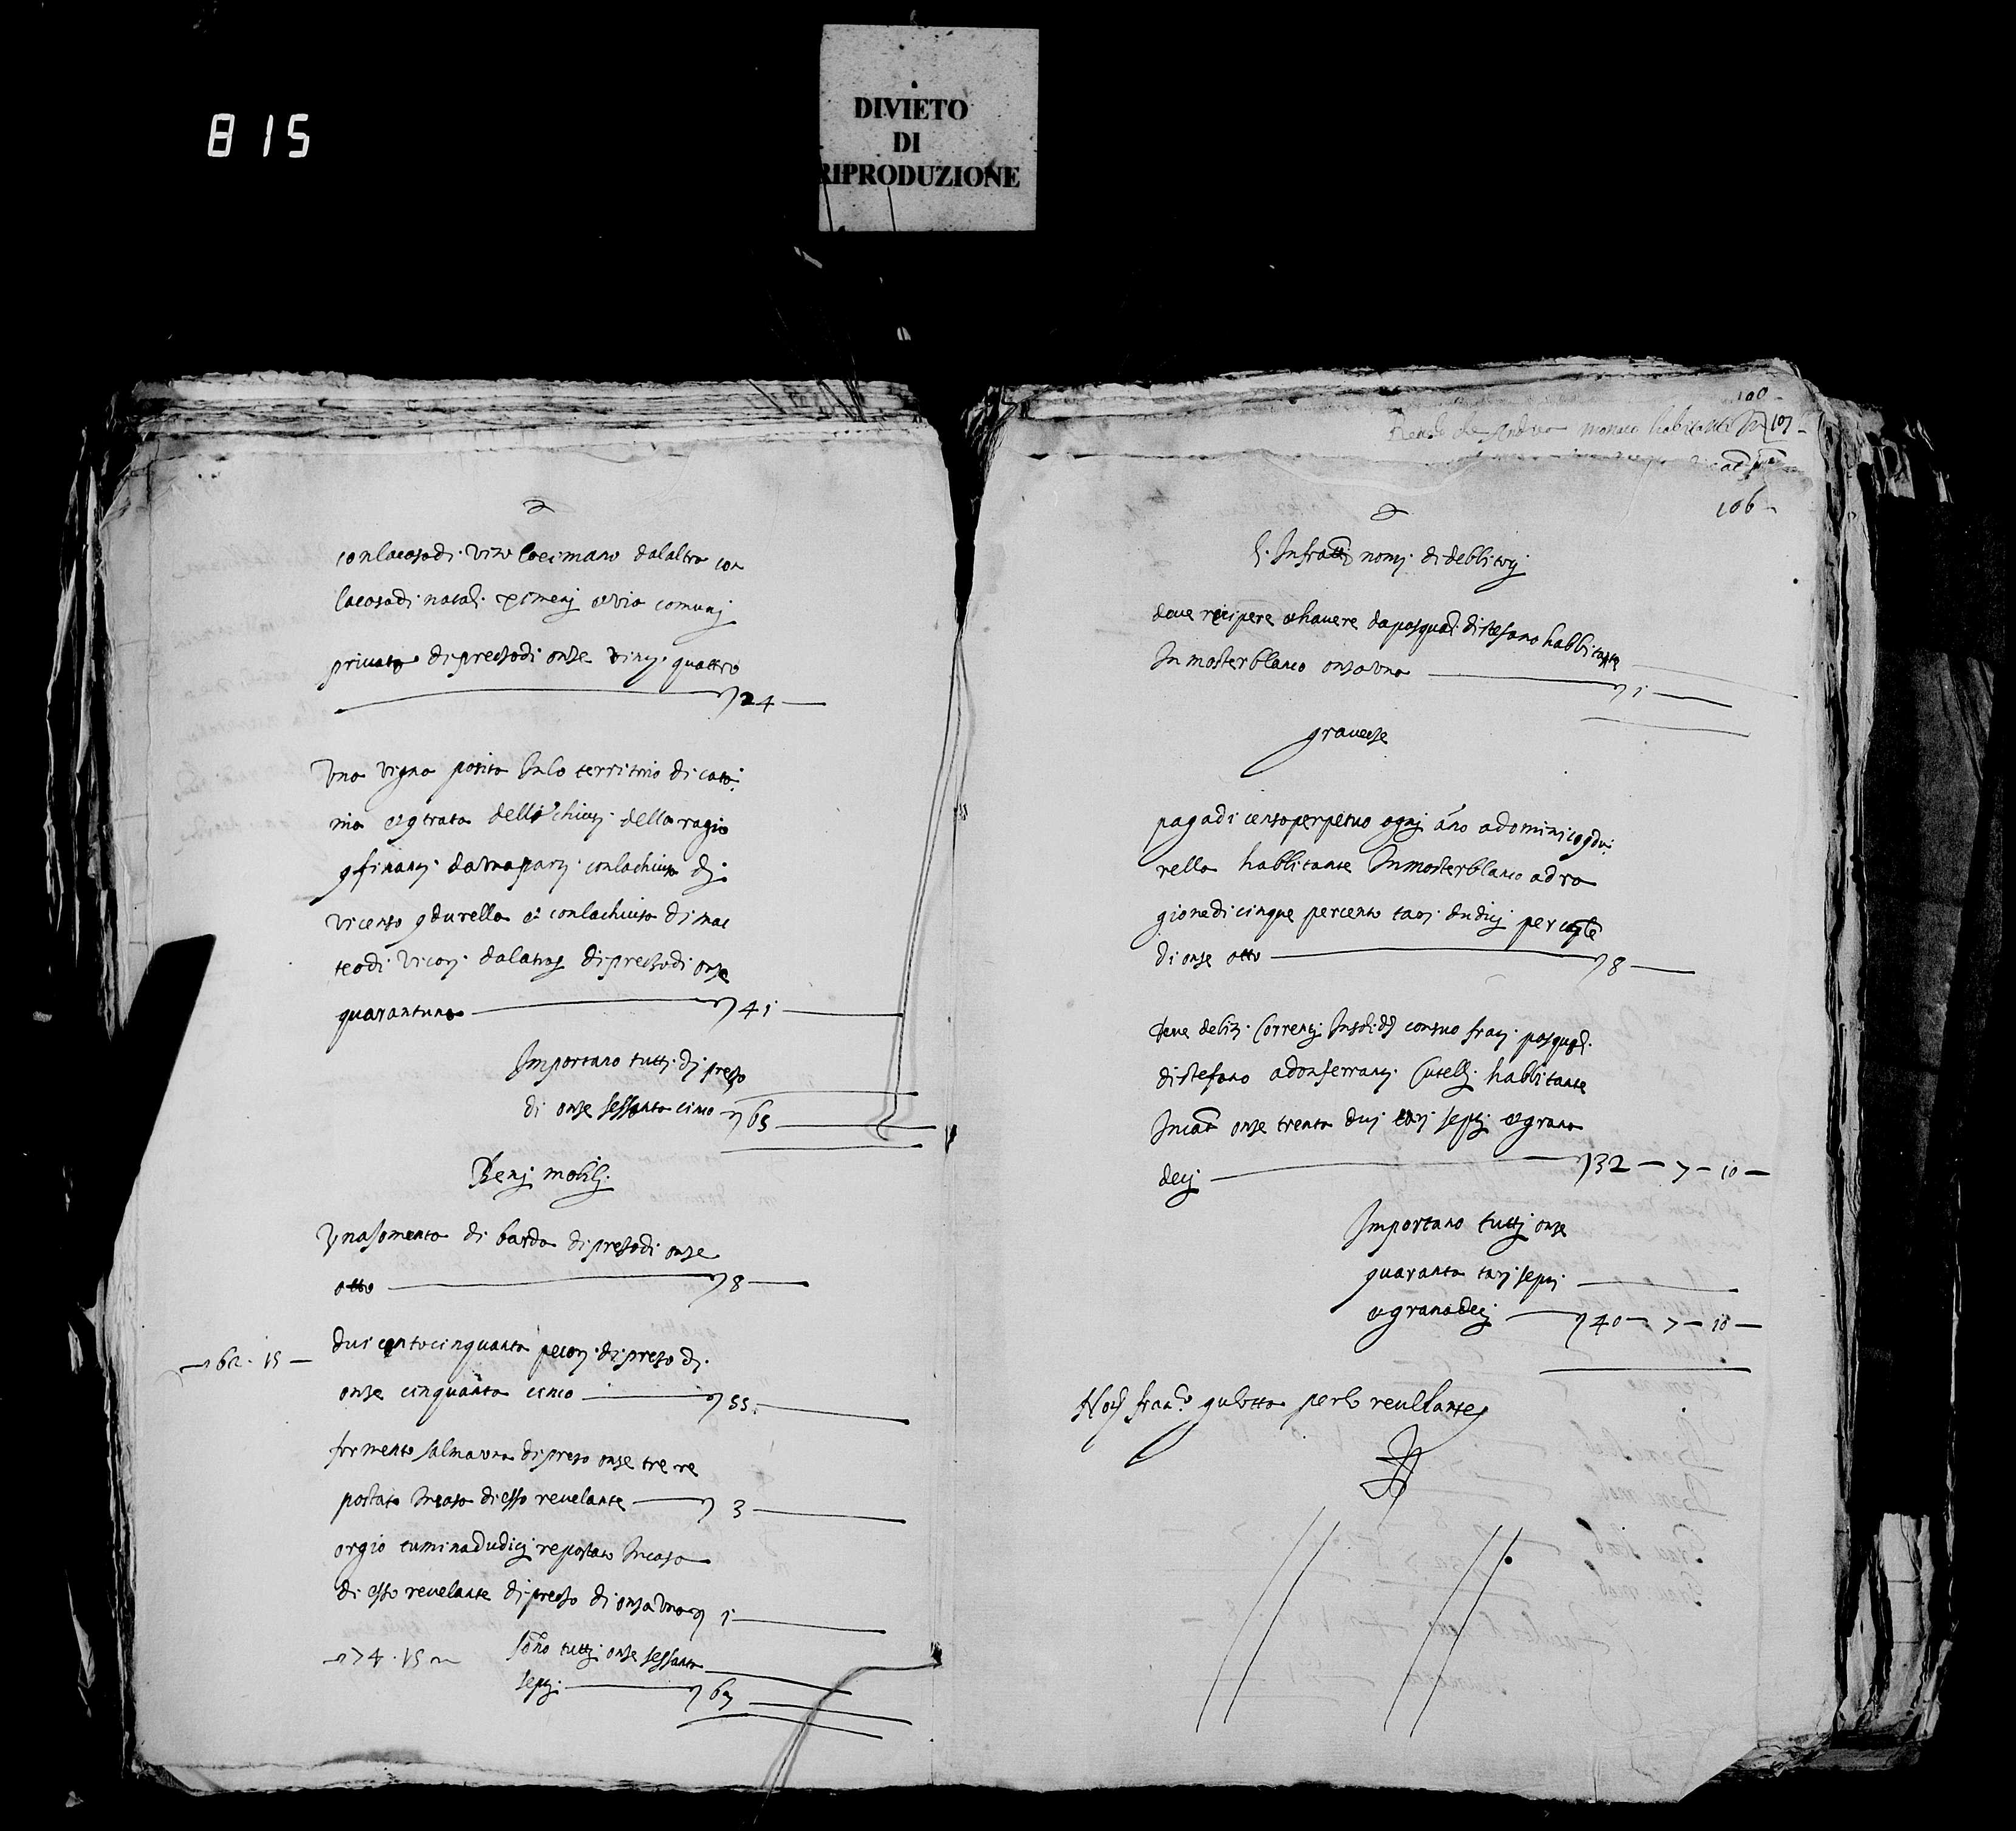 815
DIVIETO
DI
RIPRODUZIONE
con la casa di vito dal altra con
la casa di natali ximenj et via comunj
privata di prechio di onze vinti quattro
24
Una vigna posita In lo territorio di cata
nia contrata delli chiusi della ragio
confinanti da una parti con la chiusa di
vicenso condurella et con la chiusa di mat
teo di di prechio di onze
quarantuna 41
Importano tutti di prezo
di onze sessanta cinco 65
Benj mobilj
Una Jomenta di barda di prezo di onze
otto 8
62. 15
dui cento cinquanta pecori di prezo di
onze cinquanta cinco 55
formento salma una di prezo onze tre re
postato In casa di esso revelante 3
orgio tumina dudicj repostato In casa
di esso revelante di prezo di onza una 1
74. 15
sono tutti onze sessanta
septi 67
100
Andrea monaco habitante In 107
106
li Infratti nomj di debbitorj
deve recipere et havere da pasquali di stefano habbitante
In mosterblanco onza una 1
graveze
paga di censo perpetuo ognj anno a dominico condu
rella habbitante In mosterblanco a ra
gione di cinque per cento tari dudicj per capitale
di onze otto 8
deve debiti Correnti In solidum con suo frati pasquali
di stefano a don ferranti Cutelli habbitante
In cata onze trenta dui tari septi et grana
decj 32 7 10
Importano tuttj onze
quaranta tari septi
et grana decj 40 7 10
Not. franco gulotta per lo revelante